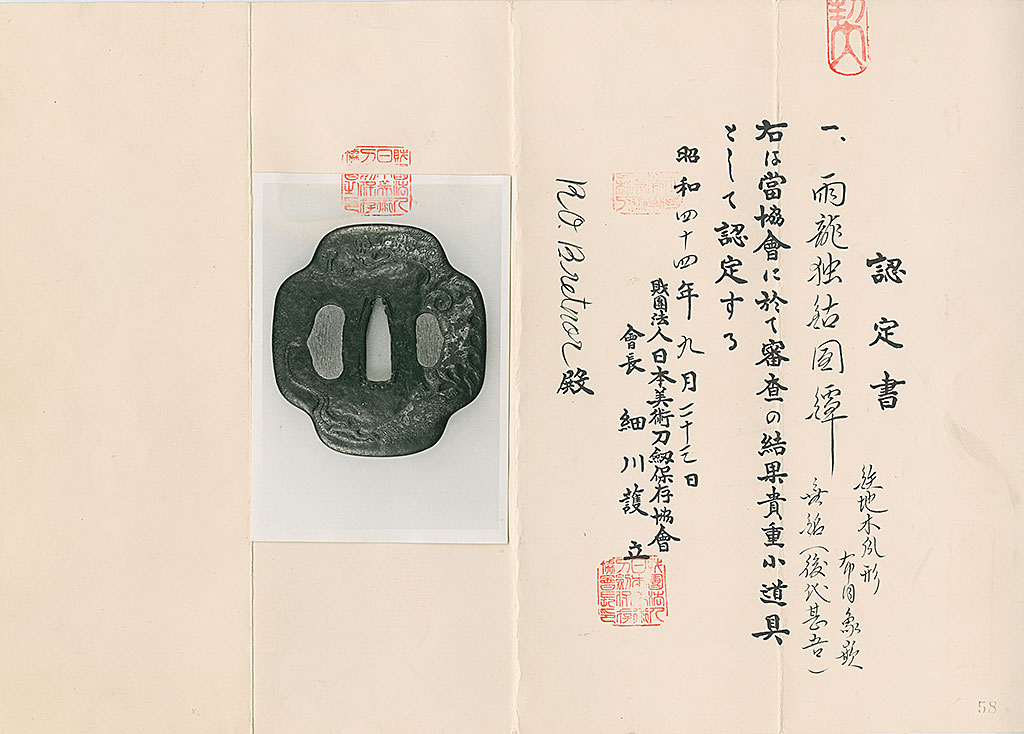 認定書
一、雨龍独鈷図鐔
鉄地木瓜形
布目象嵌
無銘(後代甚吾)
右は當協會に於て審査の結果貴重小道具
として認定する
昭和四十四年九月二十三日
財團法人日本美術刀劔保存協會
會長 細川護立
R.O. Bretnor 殿
58